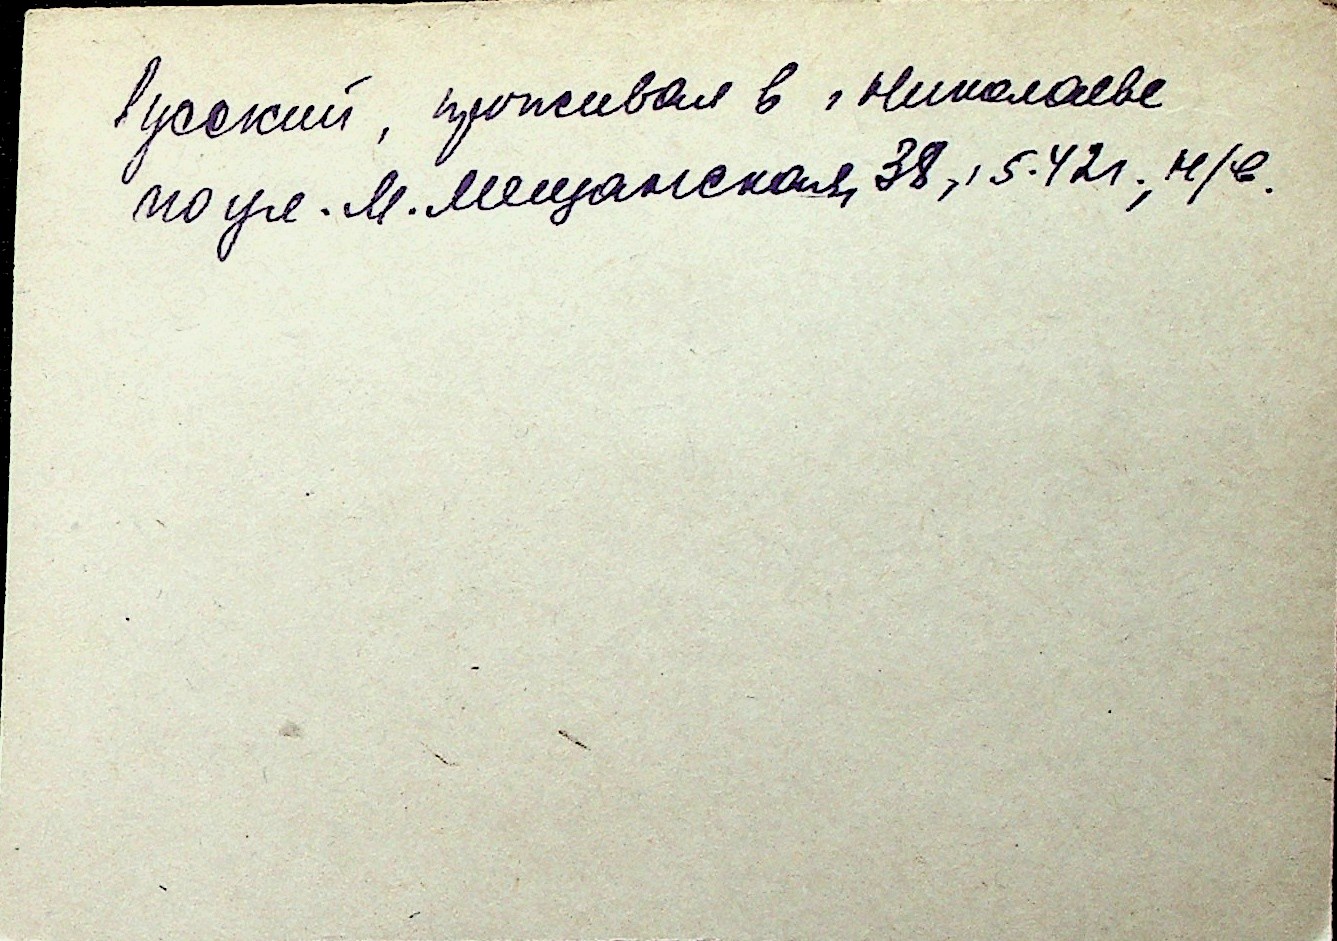 Русский, проживал в г Николаеве
по ул. М. Мещанская, 38, 15.42г., н/в.